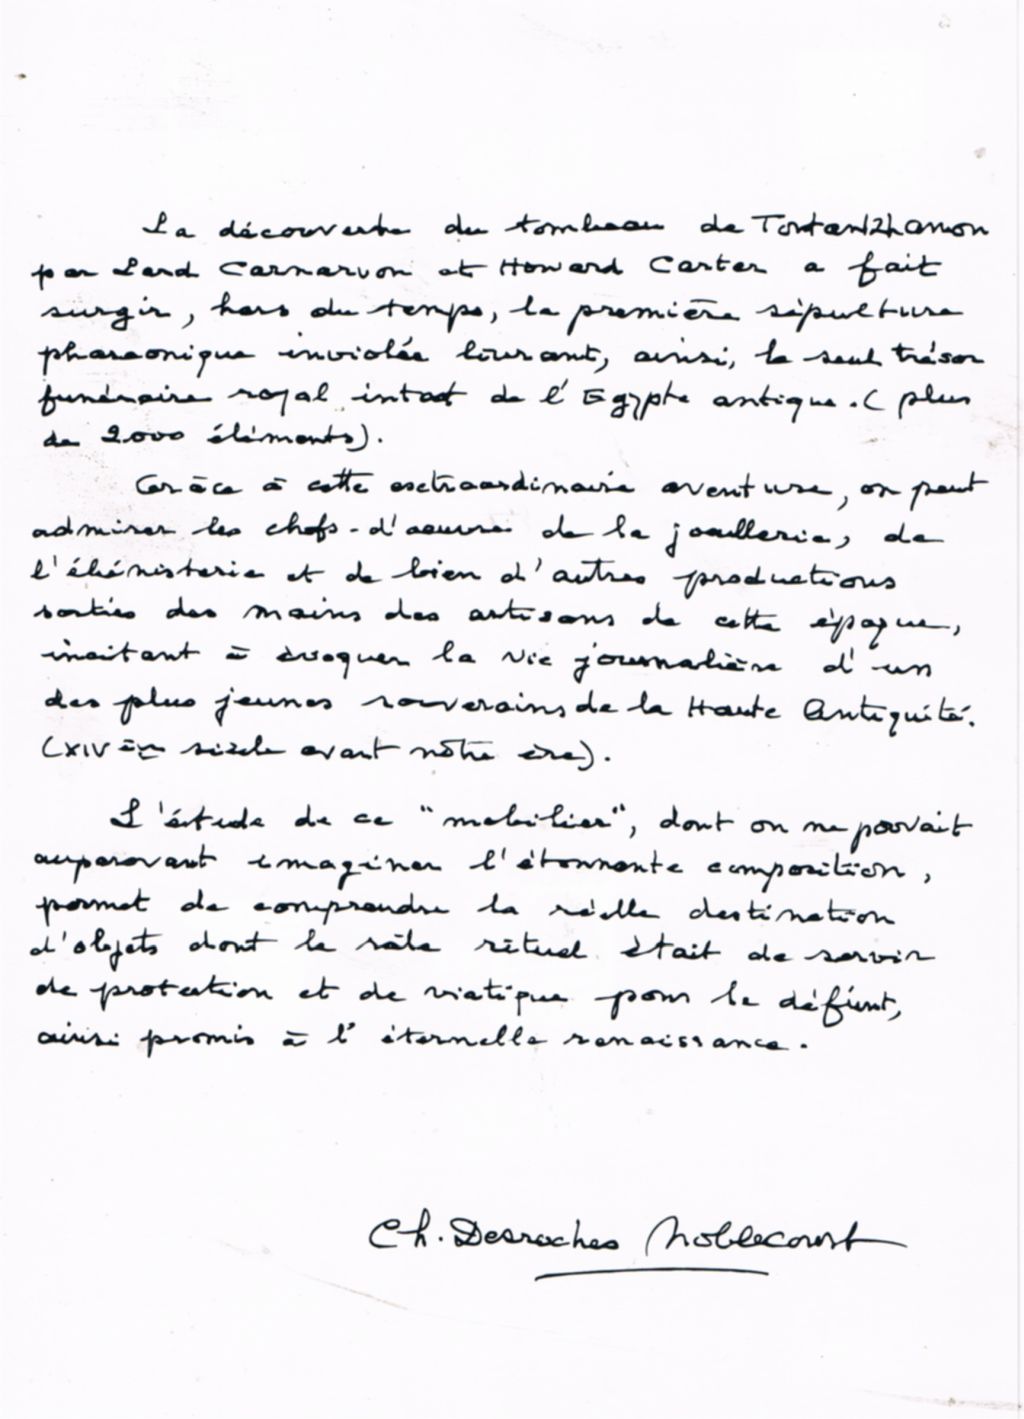 La découverte du tombeau de Toutankhamon
par Lord Carnarvon et Howard Carter a fait
surgir, hors du temps, la première sépulture
pharaonique inviolée livrant, ainsi, le seul trésor
funéraire royal intact de l'Egypte antique. (plus
de 2.000 éléments).
Grâce à cette extraordinaire aventure, on peut
admirer les chefs-d'oeuvre de la joaillerie, de
l'ébénisterie et de bien d'autres productions
sorties des mains des artisans de cette époque,
incitant à évoquer la vie journalière d'un
des plus jeunes souverains de la Haute Antiquité.
(XIVème siècle avant nôtre ère).
L'étude de ce "mobilier", dont on ne pouvait
auparavant imaginer l'étonnante composition,
permet de comprendre la réelle destination
d'objets dont le rôle rituel était de servir
de protection et de viatique pour le défunt,
ainsi promis à l'éternelle renaissance.
Ch. Desroches Noblecourt